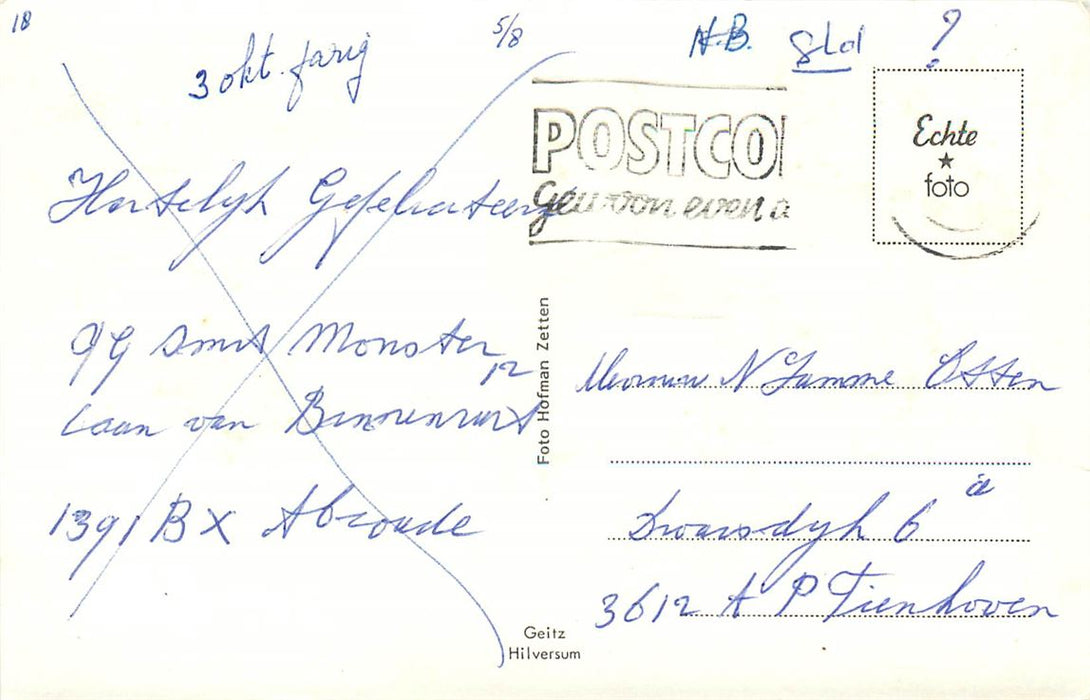 18
5/8
N.B.
?
3 okt. jarig
POSTCO
Gewoon even a
Echte
foto
Hartelijk Gefeliciteerd
Smit Monster
12
Laan van Binnenrust
1391 BX Abcoude
Foto Hofman Zetten
N Lamme Otten
Dwarsdijk 6 a
3612 AP Tienhoven
Geitz
Hilversum